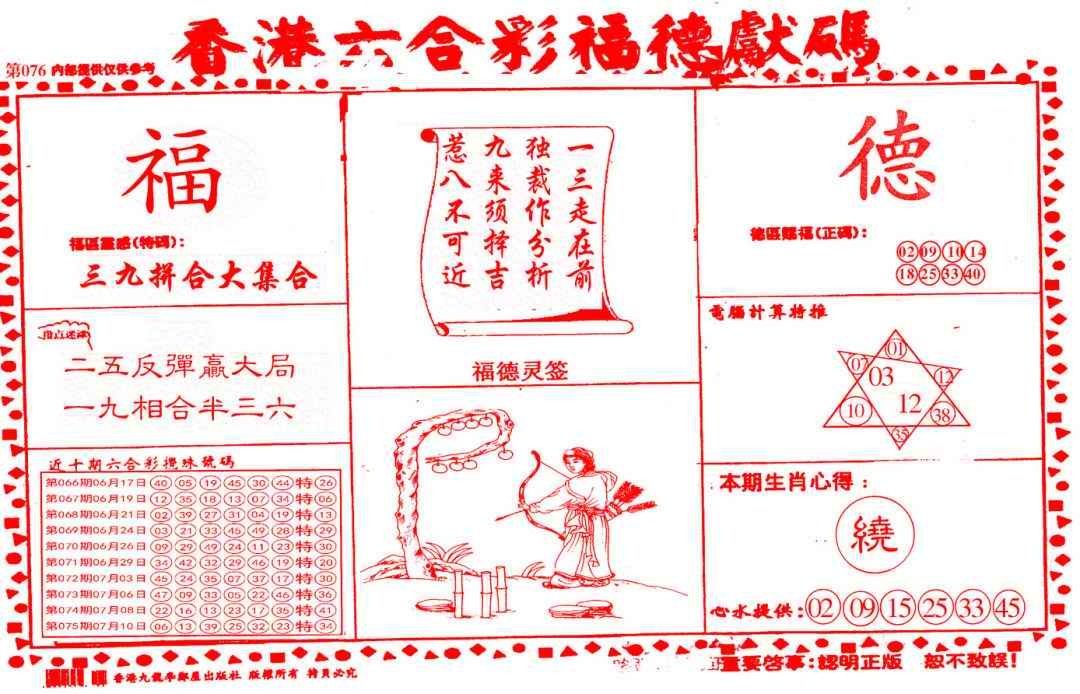 香港六合彩福德獻碼
第076 内部提供仅供参考
福
福區靈感(特碼):
三九拼合大集合
指点迷津
二五反彈贏大局
一九相合半三六
近十期六合彩攪珠號碼
第066期06月17日 40 05 19 45 30 44 特 26
第067期06月19日 12 35 18 13 07 34 特 06
第068期06月21日 02 39 27 31 04 19 特 13
第069期06月24日 03 21 33 45 49 28 特 29
第070期06月26日 09 29 49 24 11 23 特 30
第071期06月29日 34 42 32 29 46 19 特 20
第072期07月03日 45 24 35 07 37 17 特 30
第073期07月06日 47 09 33 05 22 46 特 36
第074期07月08日 22 16 13 23 17 35 特 41
第075期07月10日 06 13 39 25 32 23 特 34
一三走在前
独裁作分析
九来须择吉
惹八不可近
福德灵签
德
德區賜福(正碼):
02 09 10 14
18 25 33 40
電腦計算特推
01
07 03 12
10 12 38
35
本期生肖心得:
繞
心水提供: 02 09 15 25 33 45
香港九龍學鄰屋出版社 版權所有 特員必究
重要啓事:認明正版 恕不致誤!